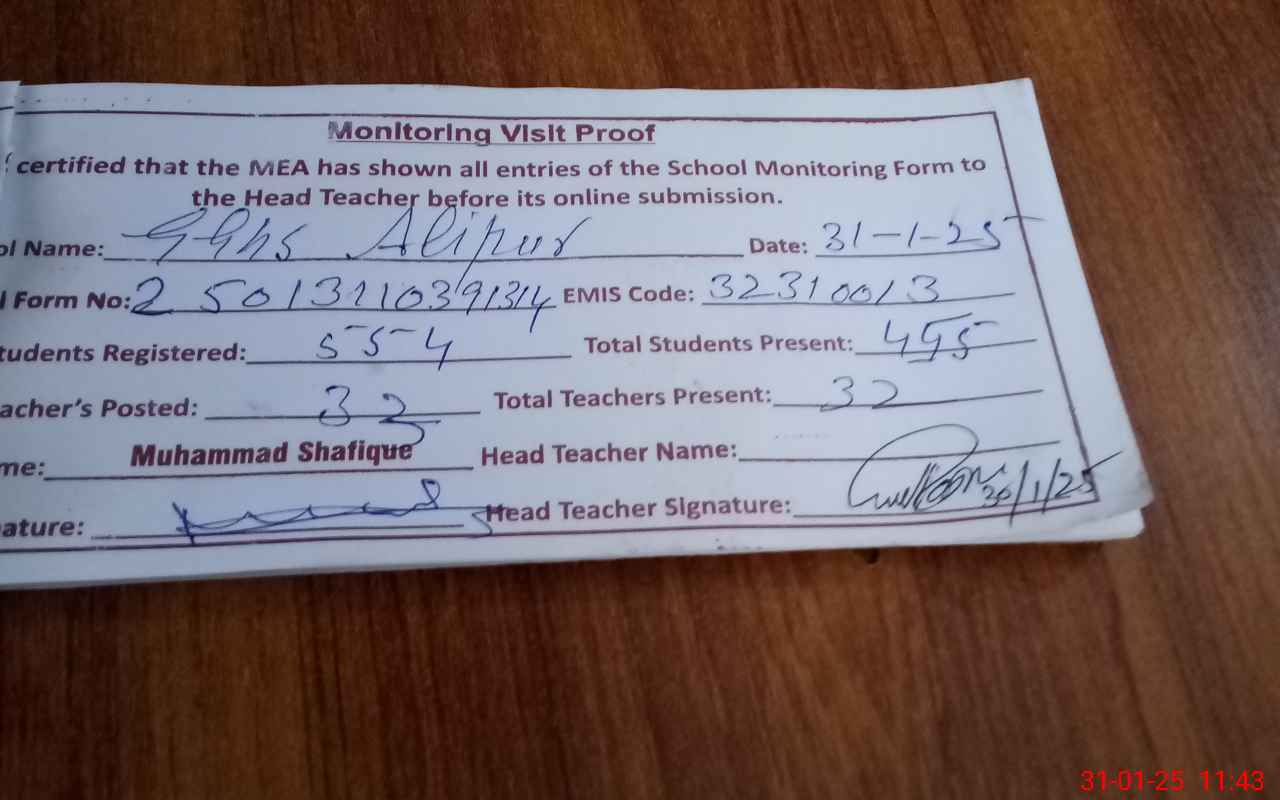 Monitoring Visit Proof
certified that the MEA has shown all entries of the School Monitoring Form to
the Head Teacher before its online submission.
ol Name: GGHS Alipur Date: 31-1-25
l Form No: EMIS Code: 32310013
tudents Registered: 554 Total Students Present: 495
acher's Posted: Total Teachers Present: 32
me: Muhammad Shafique Head Teacher Name:
ature: Head Teacher Signature: /1/25
31-01-25 11:43